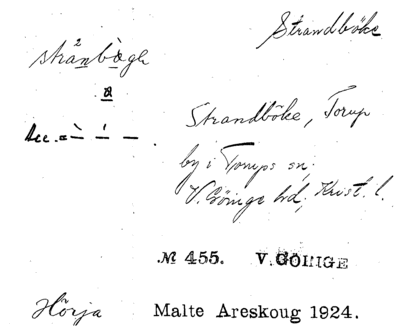 Strandböke
strånbögh
a
Acc. = ` ´ –
Strandböke, Torup
by i Torups sn,
V. Göinge hd, Krist. l.
№ 455. V. GÖINGE
Hörja Malte Areskoug 1924.